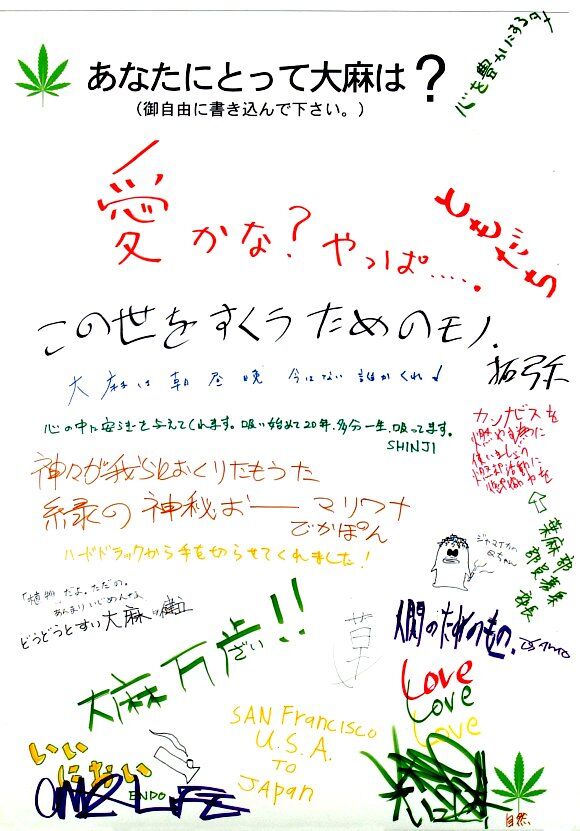 あなたにとって大麻は?
(御自由に書き込んで下さい。)
心を豊かにするタネ
愛かな?やっぱ.....
ともだち
この世をすくうためのモノ.
拓弥
大麻は 朝 昼 晩 今はない 誰かくれ!
心の中に安定を与えてくれます。吸い始めて20年、多分一生、吸ってます。
SHINJI
カンナビスを
燃やす為に
使いましょう
神々が我らにおくりたもうた
緑の神秘 マリワナ
でかぽん
ハードドラックから手を切らせてくれました!
葉麻部
部員募集
部長
「植物」だよ。ただの。
あんまりいじめんなよ
どうどうとすい大麻
人間のためのもの.
草
大麻万歩!!
ざい
Love
Love
Love
SAN FranciSCO
U.S.A.
TO
JAPAN
いい
じゃない
ONE LIFE
ENDO
自然.